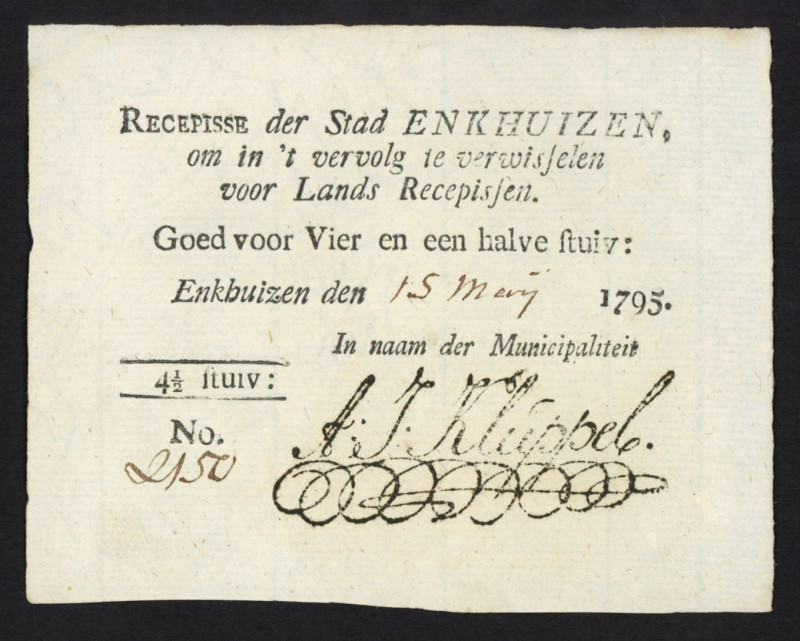 RECEPISSE der Stad ENKHUIZEN,
om in 't vervolg te verwisſelen
voor Lands Recepisſen.
Goed voor Vier en een halve ſtuiv:
Enkhuizen den 15 Meij 1795.
In naam der Municipaliteit
4½ ſtuiv:
No.
2150
A: J: Kluppel.